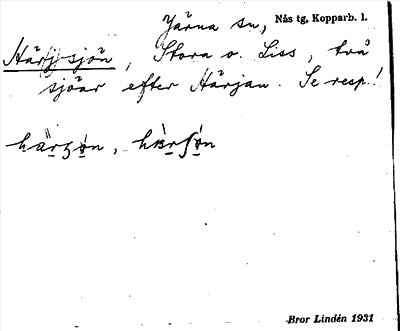 Järna sn, Nås tg, Kopparb. l.
Härjsjön, Stora o. Liss, två
sjöar efter Härjan. Se resp.!
Bror Lindén 1931